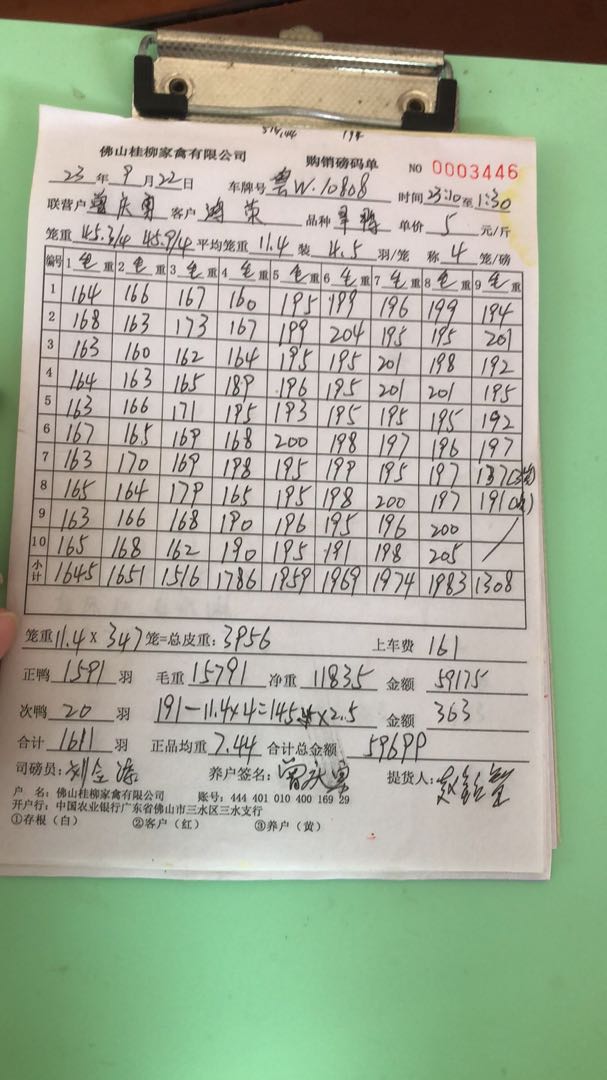 佛山桂柳家禽有限公司 购销磅码单 NO 0003446
23 年 9 月 22 日 车牌号 粤W·10808 时间 23:10 至 1:30
联营户 曾庆勇 客户 鸿荣 品种 单价 5 元/斤
笼重 45.3/4 45.9/4 平均笼重 11.4 装 4.5 羽/笼 称 4 笼/磅
编号 1 毛重 2 毛重 3 毛重 4 毛重 5 毛重 6 毛重 7 毛重 8 毛重 9 毛重
1 164 166 167 160 195 199 196 199 194
2 168 163 173 167 199 204 195 195 201
3 163 160 162 164 195 195 201 198 192
4 164 163 165 189 196 195 201 201 195
5 163 166 171 195 193 195 195 195 192
6 167 165 169 168 200 198 197 196 197
7 163 170 169 198 195 199 195 197 137(3笼)
8 165 164 179 165 195 198 200 197 191
9 163 166 168 190 196 195 196 200
10 165 168 162 190 195 191 198 205
小计 1645 1651 1516 1786 1959 1969 1974 1983 1308
笼重 11.4 × 347 笼=总皮重: 3956 上车费 161
正鸭 1591 羽 毛重 15791 净重 11835 金额 59175
次鸭 20 羽 191-11.4×4=145 ×2.5 金额 363
合计 1611 羽 正品均重 7.44 合计总金额 59699
司磅员: 养户签名: 曾庆勇 提货人:
户 名: 佛山桂柳家禽有限公司 账号: 444 401 010 400 169 29
开户行: 中国农业银行广东省佛山市三水区三水支行
①存根（白） ②客户（红） ③养户（黄）